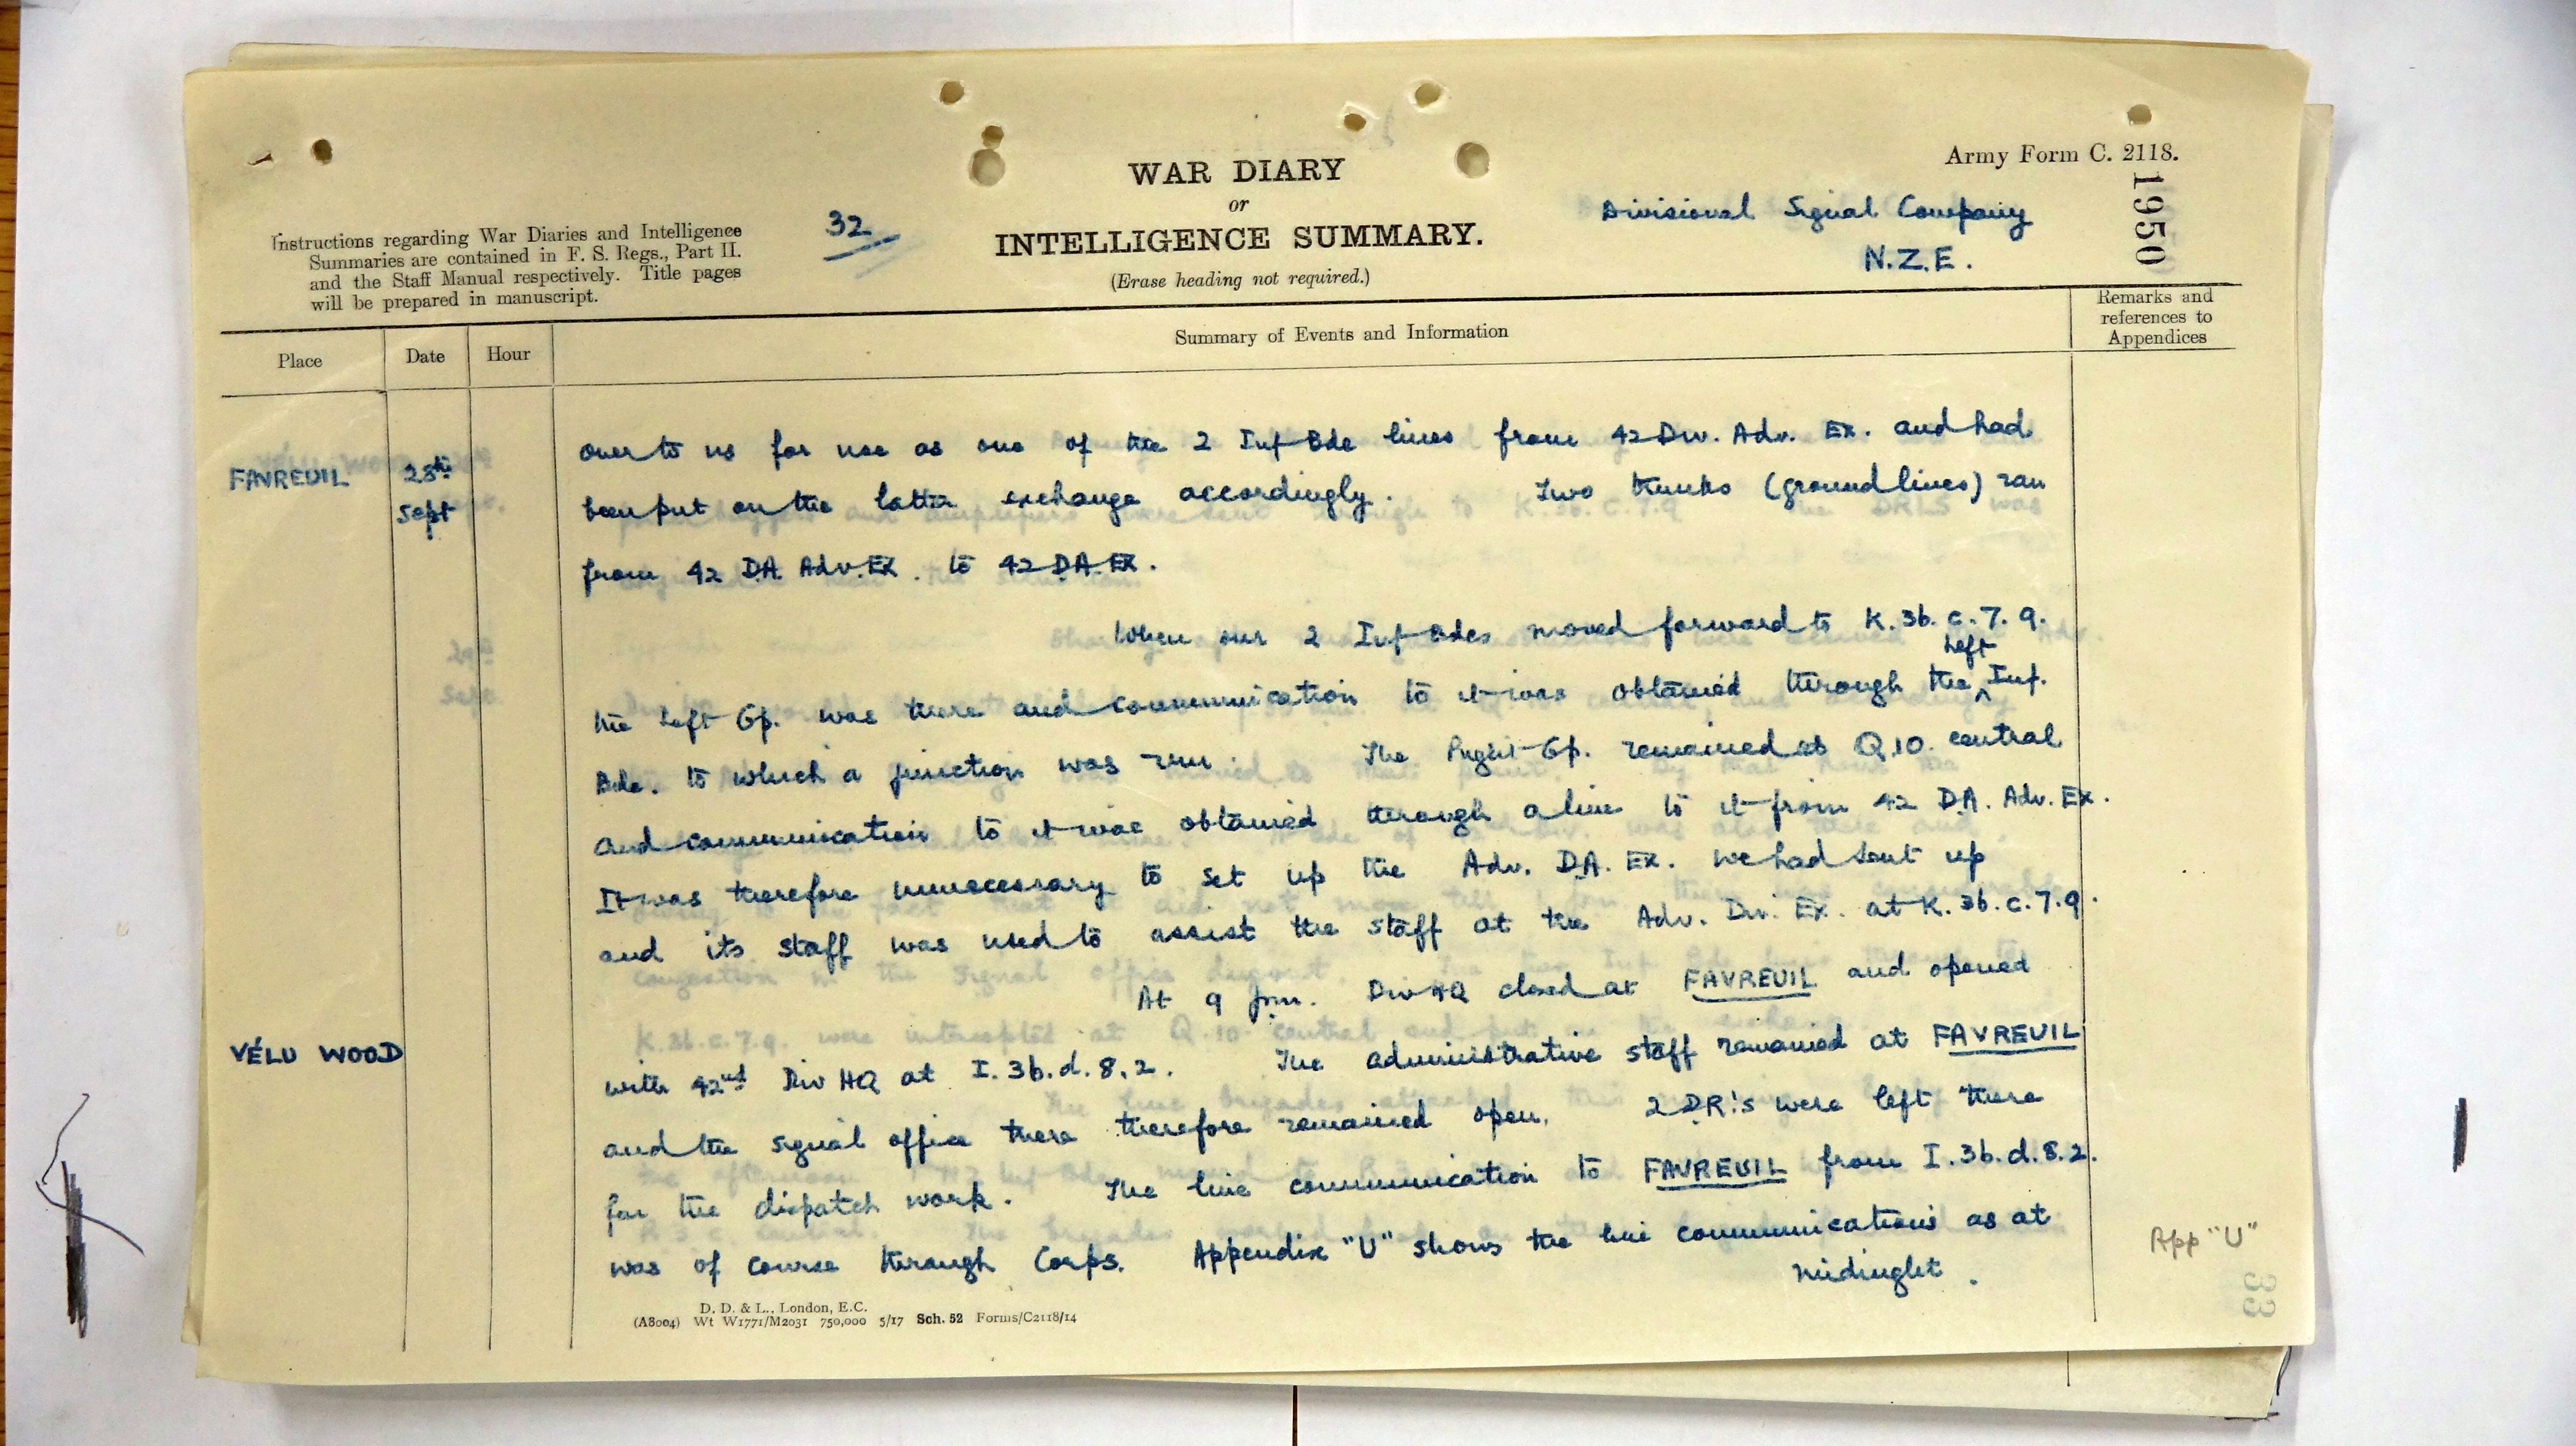 Army Form C. 2118.
1950
WAR DIARY
or
INTELLIGENCE SUMMARY.
(Erase heading not required.)
Instructions regarding War Diaries and Intelligence
Summaries are contained in F. S. Regs., Part II.
and the Staff Manual respectively. Title pages
will be prepared in manuscript.
32
Divisional Signal Company
N.Z.E.
Place
Date
Hour
Summary of Events and Information
Remarks and
references to
Appendices
FAVREUIL
28th
Sept
over to us for use as one of the 2 Inf Bde lines from 42 Div. Adv. Ex. and had
been put on the latter exchange accordingly. Two trunks (ground lines) ran
from 42 D.A. Adv. Ex. to 42 D.A. Ex.
When our 2 Inf Bdes moved forward to K.36.c.7.9.
the Left Gp. was there and communication to it was obtained through the Left Inf.
Bde. to which a junction was run. The Right Gp. remained at Q.10. central
and communication to it was obtained through a line to it from 42 D.A. Adv. Ex.
It was therefore unnecessary to set up the Adv. D.A. Ex. we had sent up
and its staff was used to assist the staff at the Adv. Div. Ex. at K.36.c.7.9.
At 9 p.m. Div HQ closed at FAVREUIL and opened
VÉLU WOOD
with 42nd Div HQ at I.36.d.8.2. The administrative staff remained at FAVREUIL
and the signal office there therefore remained open. 2 D.R.'s were left there
for the dispatch work. The line communication to FAVREUIL from I.36.d.8.2.
was of course through Corps. Appendix "U" shows the line communications as at
midnight.
App "U"
33
D. D. & L., London, E.C.
(A8004) Wt W1771/M2031 750,000 5/17 Sch. 52 Forms/C2118/14